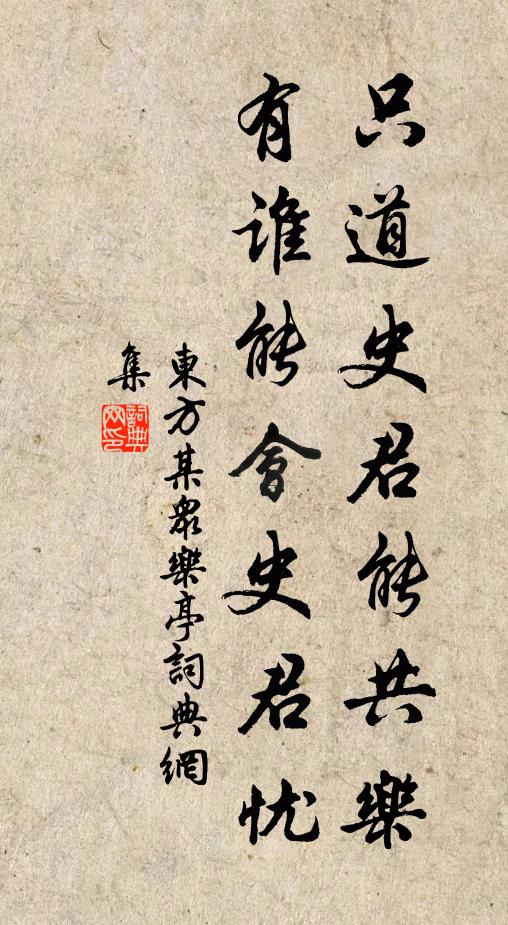 只道史君能共樂
有誰能會史君忧
東方某衆樂亭詞典網
集
詞典網印